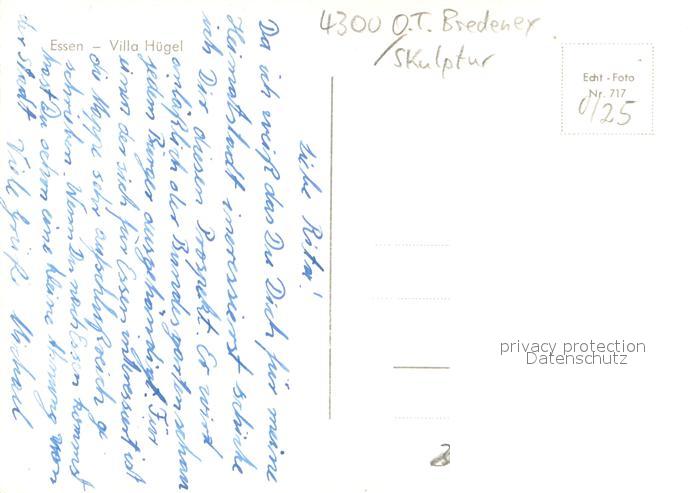 4300 O.T. Bredeney
Skulptur
Essen – Villa Hügel
Echt - Foto
Nr. 717
0/25
Liebe Rita!
Da ich weiß das Du Dich für meine
Heimatstadt interessierst schicke
ich Dir diesen Prospekt. Er wird
anläßlich der Bundesgartenschau
jedem Bürger ausgehändigt. Für
einen der sich für Essen interessiert ist
die Mappe sehr aufschlußreich ge
schrieben. Wenn Du nach Essen kommst
hast Du schon eine kleine Ahnung von
der Stadt Viele Grüße Michael
privacy protection
Datenschutz